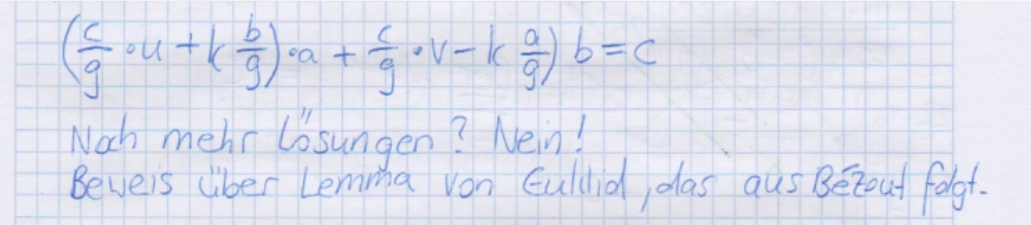 (c/g · u + k b/g) · a + c/g · v − k a/g) b = c
Noch mehr Lösungen? Nein!
Beweis über Lemma von Euklid, das aus Bézout folgt.